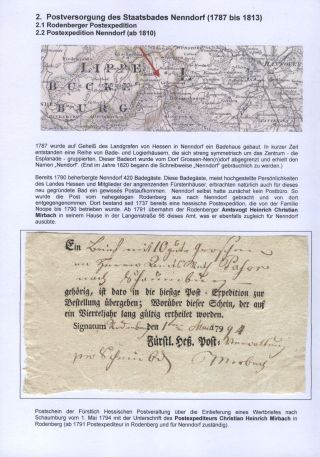 2. Postversorgung des Staatsbades Nenndorf (1787 bis 1813)
2.1 Rodenberger Postexpedition
2.2 Postexpedition Nenndorf (ab 1810)
LIPPE
BÜCKE
BURG
HANNOVER
1787 wurde auf Geheiß des Landgrafen von Hessen in Nenndorf ein Badehaus gebaut. In kurzer Zeit
entstanden eine Reihe von Bade- und Logierhäusern, die sich streng symmetrisch um das Zentrum - die
Esplanade - gruppierten. Dieser Badeort wurde vom Dorf Grossen-Nen(n)dorf abgegrenzt und erhielt den
Namen „Nendorf". (Erst im Jahre 1820 begann die Schreibweise „Nenndorf" gebräuchlich zu werden.)
Bereits 1790 beherbergte Nenndorf 420 Badegäste. Diese Badegäste, meist hochgestellte Persönlichkeiten
des Landes Hessen und Mitglieder der angrenzenden Fürstenhäuser, erbrachten natürlich auch für dieses
neu gegründete Bad ein gewisses Postaufkommen. Nenndorf selbst hatte zunächst kein Postbüro. So
wurde die Post vom nahegelegen Rodenberg aus nach Nenndorf gebracht und von dort
entgegengenommen. Dort bestand seit 1737 bereits eine hessische Postexpedition, die von der Familie
Hoppe bis 1790 betrieben wurde. Ab 1791 übernahm der Rodenberger Amtsvogt Heinrich Christian
Mirbach in seinem Hause in der Langenstraße 56 dieses Amt, was er ebenfalls zugleich für Nenndorf
ausübte.
Ein Brief mit 10
nach Schaumburg
gehörig, ist dato in die hiesige Post-Expedition zur
Bestellung übergeben; Worüber dieser Schein, der auf
ein Vierteljahr lang gültig ertheilet worden.
Signatum den 1 1794
Fürstl. Heß. Post-Verwaltung
Postschein der Fürstlich Hessischen Postveraltung über die Einlieferung eines Wertbriefes nach
Schaumburg vom 1. Mai 1794 mit der Unterschrift des Postexpediteurs Christian Heinrich Mirbach in
Rodenberg (ab 1791 Postexpediteur in Rodenberg und für Nenndorf zuständig).